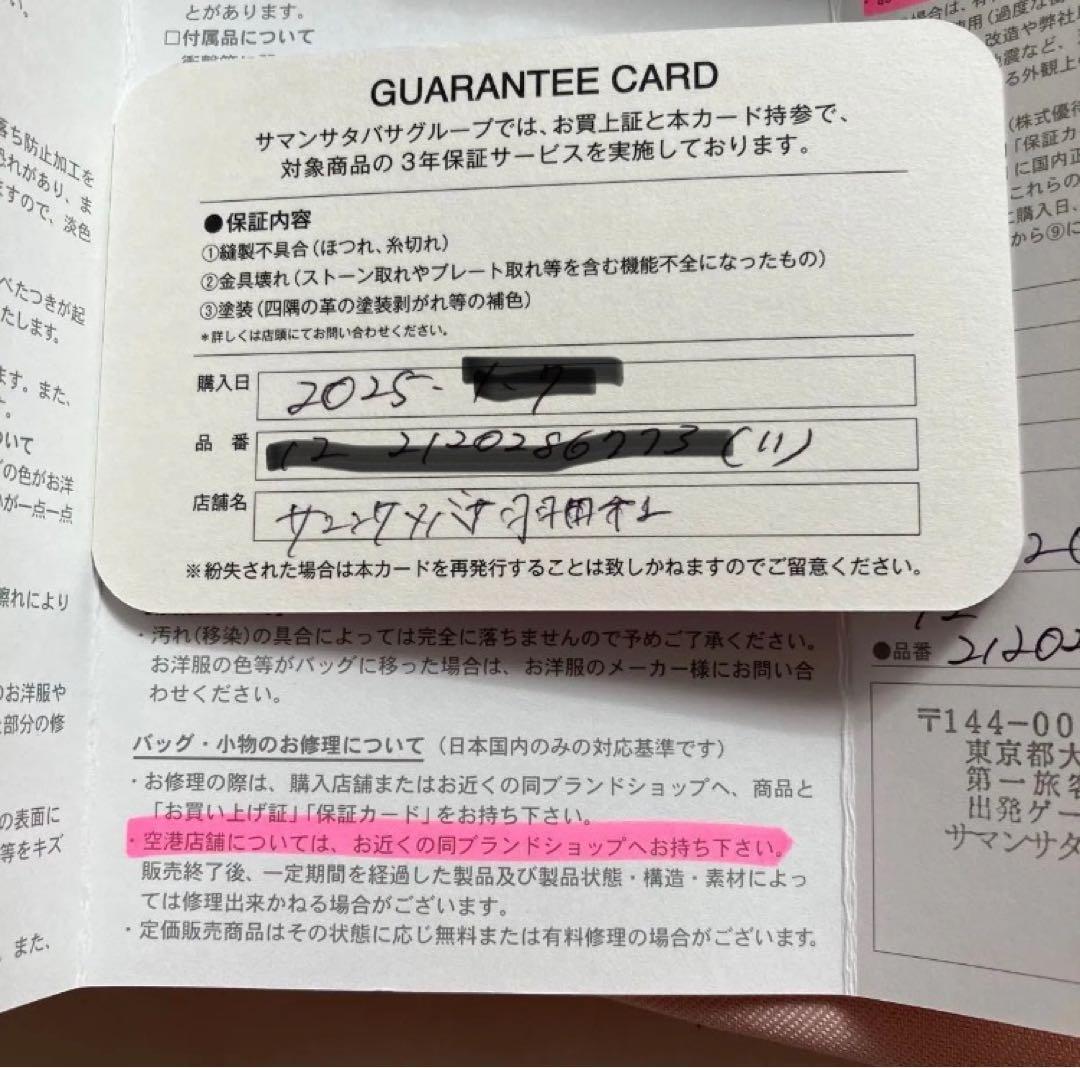 とがあります。
□付属品について
GUARANTEE CARD
サマンサタバサグループでは、お買上証と本カード持参で、
対象商品の3年保証サービスを実施しております。
●保証内容
①縫製不具合(ほつれ、糸切れ)
②金具壊れ(ストーン取れやプレート取れ等を含む機能不全になったもの)
③塗装(四隅の革の塗装剥がれ等の補色)
*詳しくは店頭にてお問い合わせください。
購入日 2025-
品番 (11)
店舗名 サマンサタバサ羽田
※紛失された場合は本カードを再発行することは致しかねますのでご留意ください。
・汚れ(移染)の具合によっては完全に落ちませんので予めご了承ください。
お洋服の色等がバッグに移った場合は、お洋服のメーカー様にお問い合
わせください。
バッグ・小物のお修理について(日本国内のみの対応基準です)
・お修理の際は、購入店舗またはお近くの同ブランドショップへ、商品と
「お買い上げ証」「保証カード」をお持ち下さい。
・空港店舗については、お近くの同ブランドショップへお持ち下さい。
販売終了後、一定期間を経過した製品及び製品状態・構造・素材によっ
ては修理出来かねる場合がございます。
・定価販売商品はその状態に応じ無料または有料修理の場合がございます。
落ち防止加工を
恐れがあり、ま
ますので、淡色
べたつきが起
たします。
ます。また、
ついて
の色がお洋
が一点一点
擦れにより
のお洋服や
部分の修
の表面に
等をキズ
また、
場合は、有
使用(過度な
改造や弊社
地震など、
る外観上
(株式優待
「保証カ
に国内正
これらの
購入日、
から⑨に
●品番 21202
〒144-00
東京都大
第一旅客
出発ゲー
サマンサタ